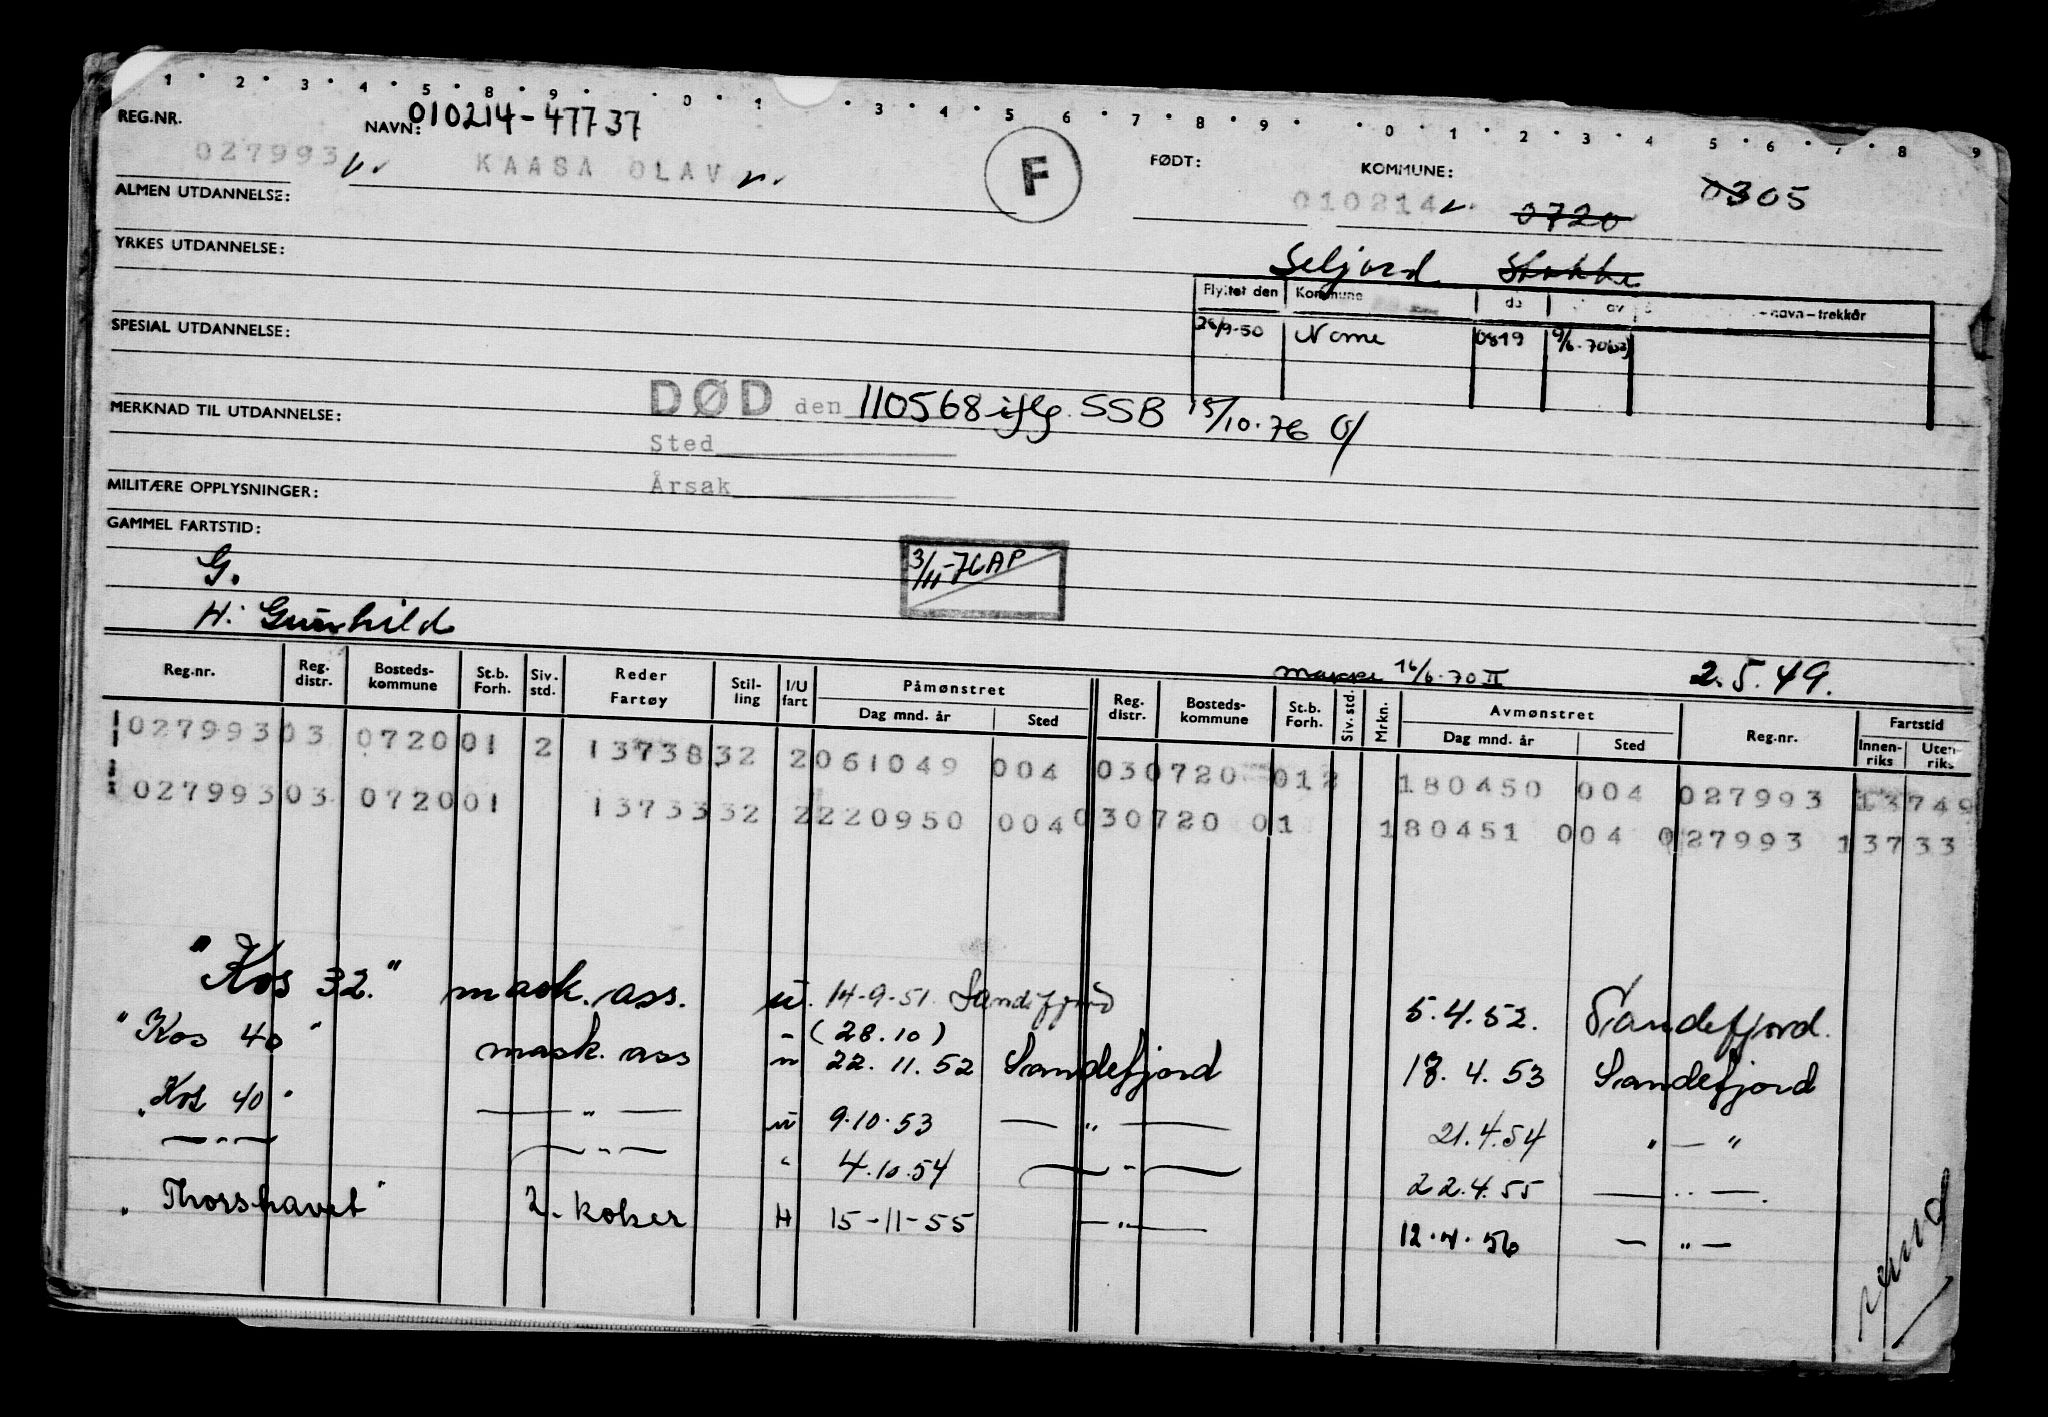 1 · 2 · 3 · 4 · 5 · 8 · 9 · 0 · 1 · 3 · 4 · 5 6 · 7 · 8 · 9 · · 0 · 1 · 2 · 3 · 4 · 5 · 6 · 7 · 8 · 9
REG.NR. NAVN: 010214-47737 FØDT: KOMMUNE: 0305
027993 KAASA OLAV F 010214 0720
ALMEN UTDANNELSE:
YRKES UTDANNELSE: Seljord Stokke
Flyttet den Kommune - navn - trekkår
SPESIAL UTDANNELSE: 26/9-50 Nome 0819 9/6-70
MERKNAD TIL UTDANNELSE: DØD den 110568 iflg. SSB 15/10.76
Sted
MILITÆRE OPPLYSNINGER: Årsak
GAMMEL FARTSTID:
G. 3/11-76 AP
H: Gunhild
16/6.70 II 2.5.49.
Reg.nr. Reg. distr. Bosteds-kommune St.b. Forh. Siv. std. Reder Fartøy Stil-ling I/U fart Påmønstret Dag mnd. år Sted Reg. distr. Bosteds-kommune St.b. Forh. Siv. std. Mrkn. Avmønstret Dag mnd. år Sted Reg.nr. Fartstid Innen-riks Uten-riks
027993 03 0720 01 2 13738 32 2 061049 004 03 0720 01 2 180450 004 027993 13749
027993 03 0720 01 13733 32 2 220950 004 03 0720 01 180451 004 027993 13733
"Kos 32." mask. ass. u. 14-9-51. Sandefjord 5.4.52. Sandefjord.
- (28.10)
"Kos 40" mask. ass u 22.11.52 Sandefjord 18.4.53 Sandefjord
"Kos 40" — " — u 9.10.53 — " — 21.4.54 " — "
— " — — " — " 4.10.54 — " — 22.4.55 — " —.
"Thorshavet" 2. koker H 15-11-55 — " — 12.4.56 — " —